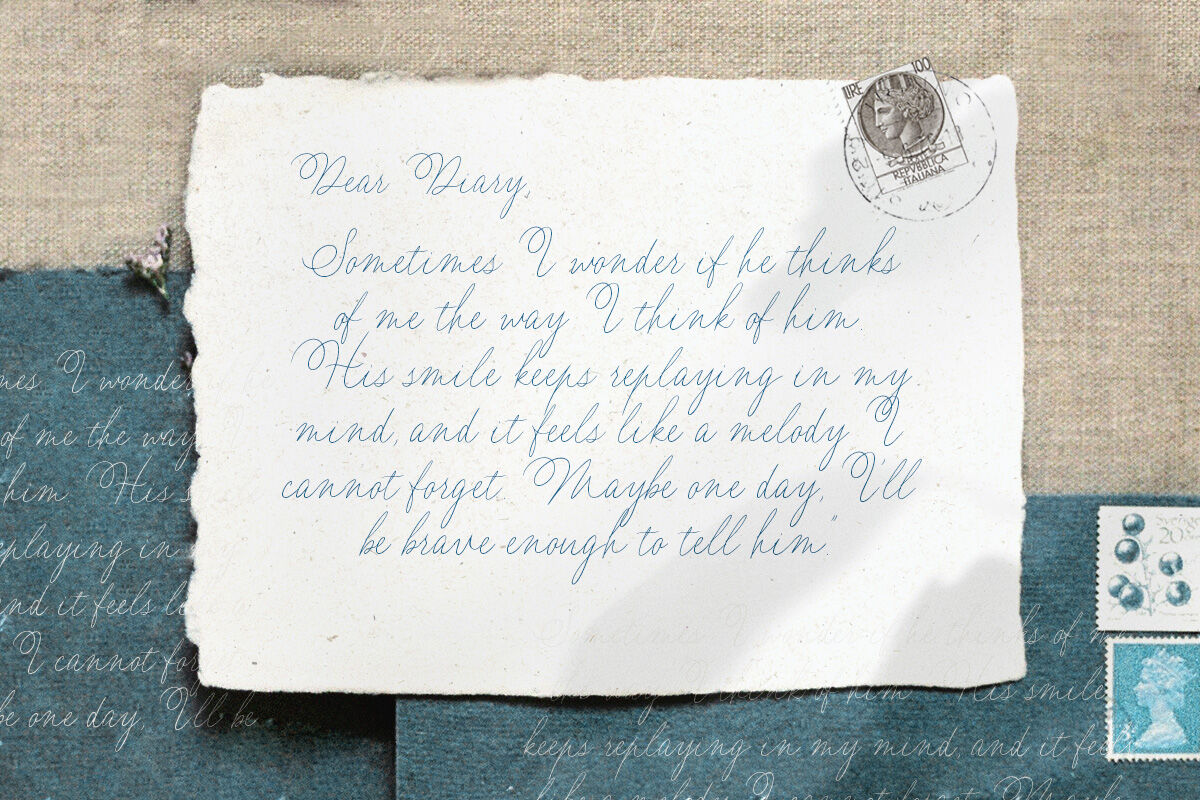 Dear Diary,
Sometimes I wonder if he thinks
of me the way I think of him.
His smile keeps replaying in my
mind, and it feels like a melody I
cannot forget. Maybe one day, I'll
be brave enough to tell him."
LIRE 100
REPVBBLICA
ITALIANA
mes I wonder
of me the way
him. His s
eplaying in m
and it feels l
I cannot for
be one day, I'll be
20
Sometimes I wonder if he thinks of m
I think of him. His smile
keeps replaying in my mind, and it fee
like a melody I cannot forget. Mayb